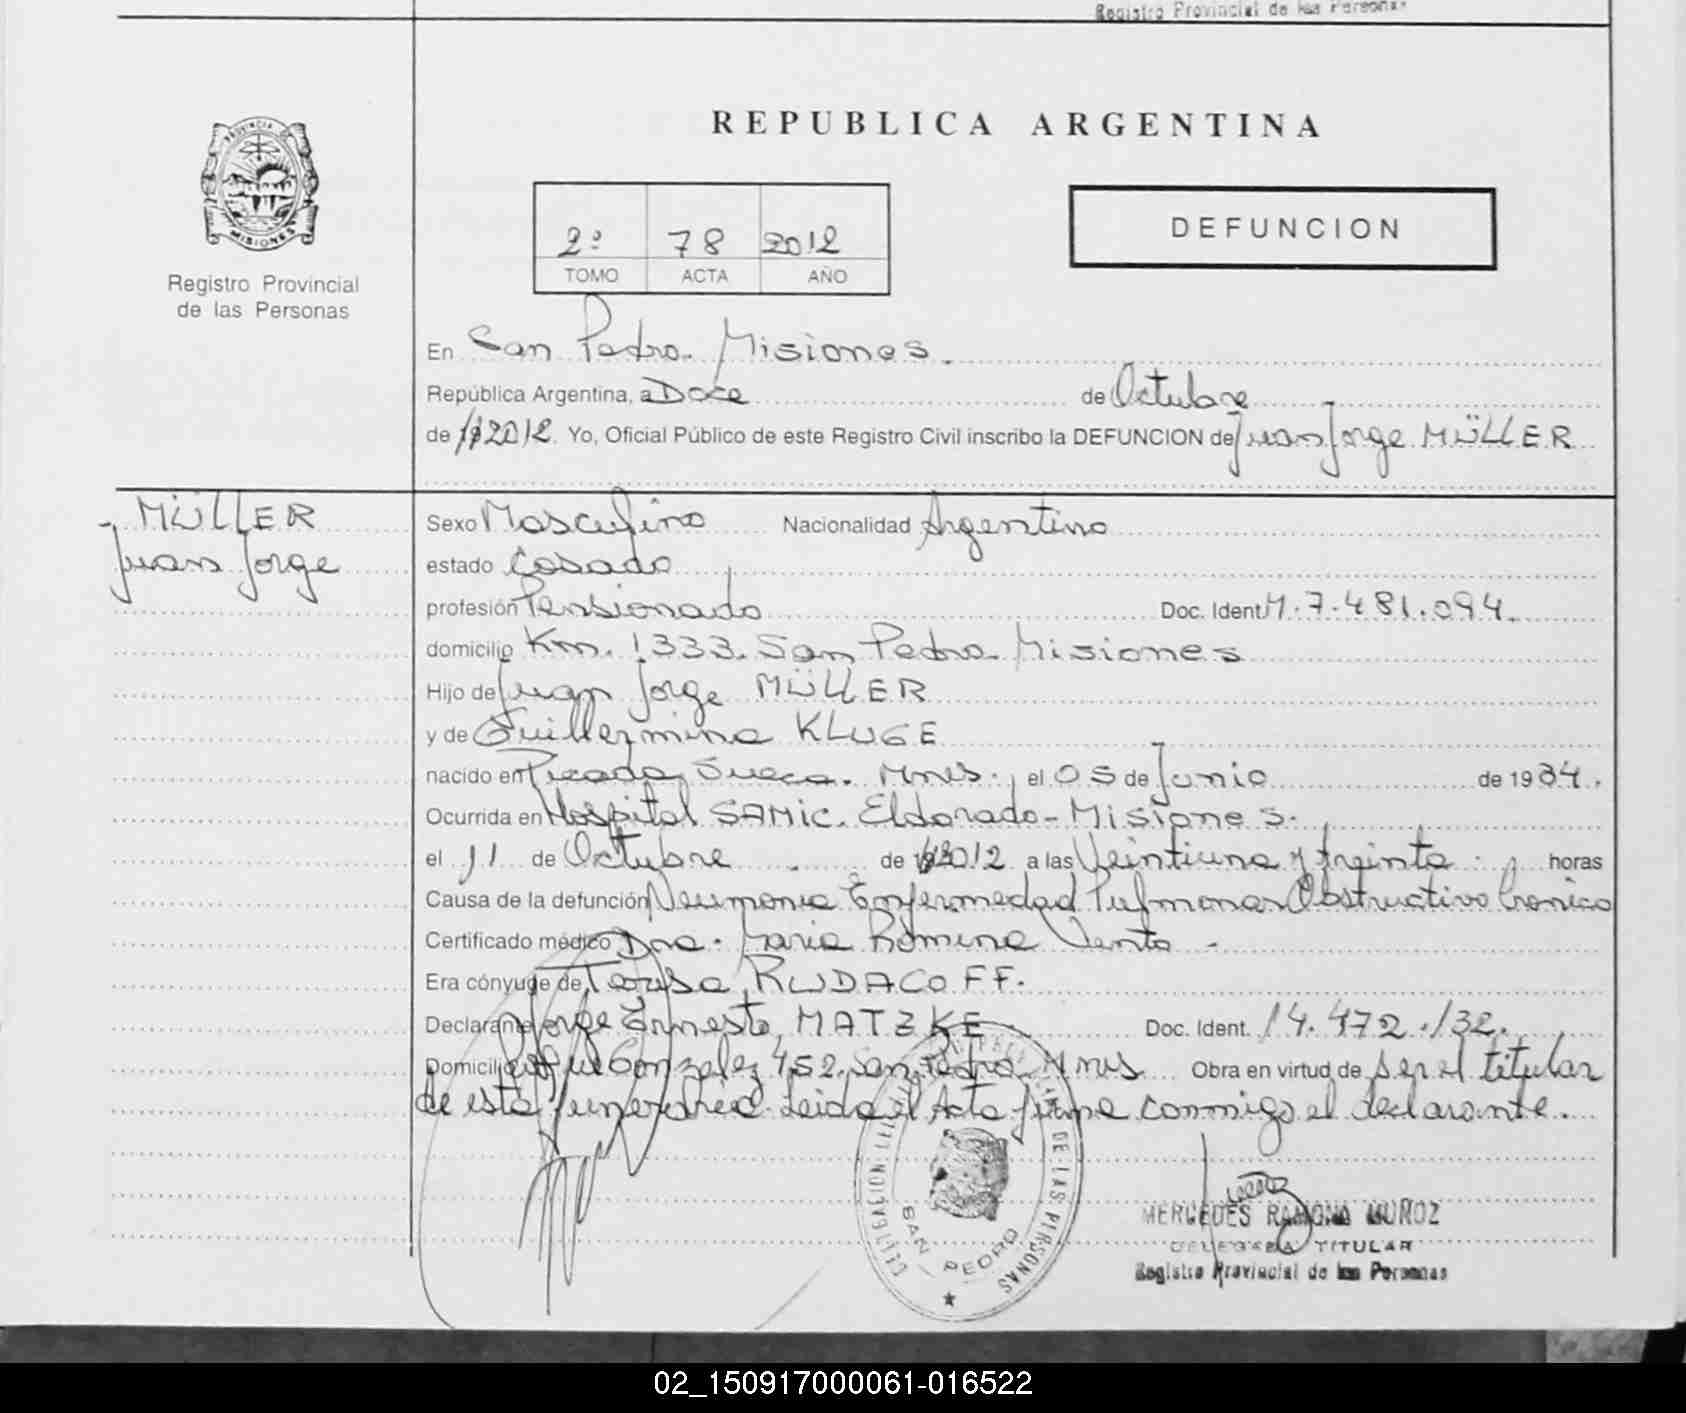 Registro Provincial de las Personas
REPUBLICA ARGENTINA
PROVINCIA DE
MISIONES
Registro Provincial
de las Personas
2º 78 2012
TOMO ACTA AÑO
DEFUNCION
En San Pedro. Misiones.
República Argentina, a Doce de Octubre
de 2012. Yo, Oficial Público de este Registro Civil inscribo la DEFUNCION de Juan Jorge MÜLLER
MÜLLER
Juan Jorge
Sexo Masculino Nacionalidad Argentino
estado Casado
profesión Pensionado Doc. Ident. M. 7.481.094.
domicilio Km. 1333. San Pedro. Misiones
Hijo de Juan Jorge MÜLLER
y de Guillermina KLUGE
nacido en Picada Sueca. Mnes. el 05 de Junio de 1934.
Ocurrida en Hospital SAMIC. Eldorado - Misiones.
el 11 de Octubre de 2012 a las Veintiuna y treinta. horas
Causa de la defunción Neumonia Enfermedad Pulmonar Obstructivo Cronico
Certificado médico Dra. Maria Romina Vento -
Era cónyuge de Teresa RUDACOFF.
Declarante Jorge Ernesto MATZKE Doc. Ident. 14.472.132.
Domicilio Roque Gonzalez 452. San Pedro. Mnes Obra en virtud de ser el titular
de esta funeraria. Leida el Acta firma conmigo el declarante.
DELEGACION DE LAS PERSONAS
SAN PEDRO
MERCEDES RAMONA MUÑOZ
DELEGADA TITULAR
Registro Provincial de las Personas
02_150917000061-016522